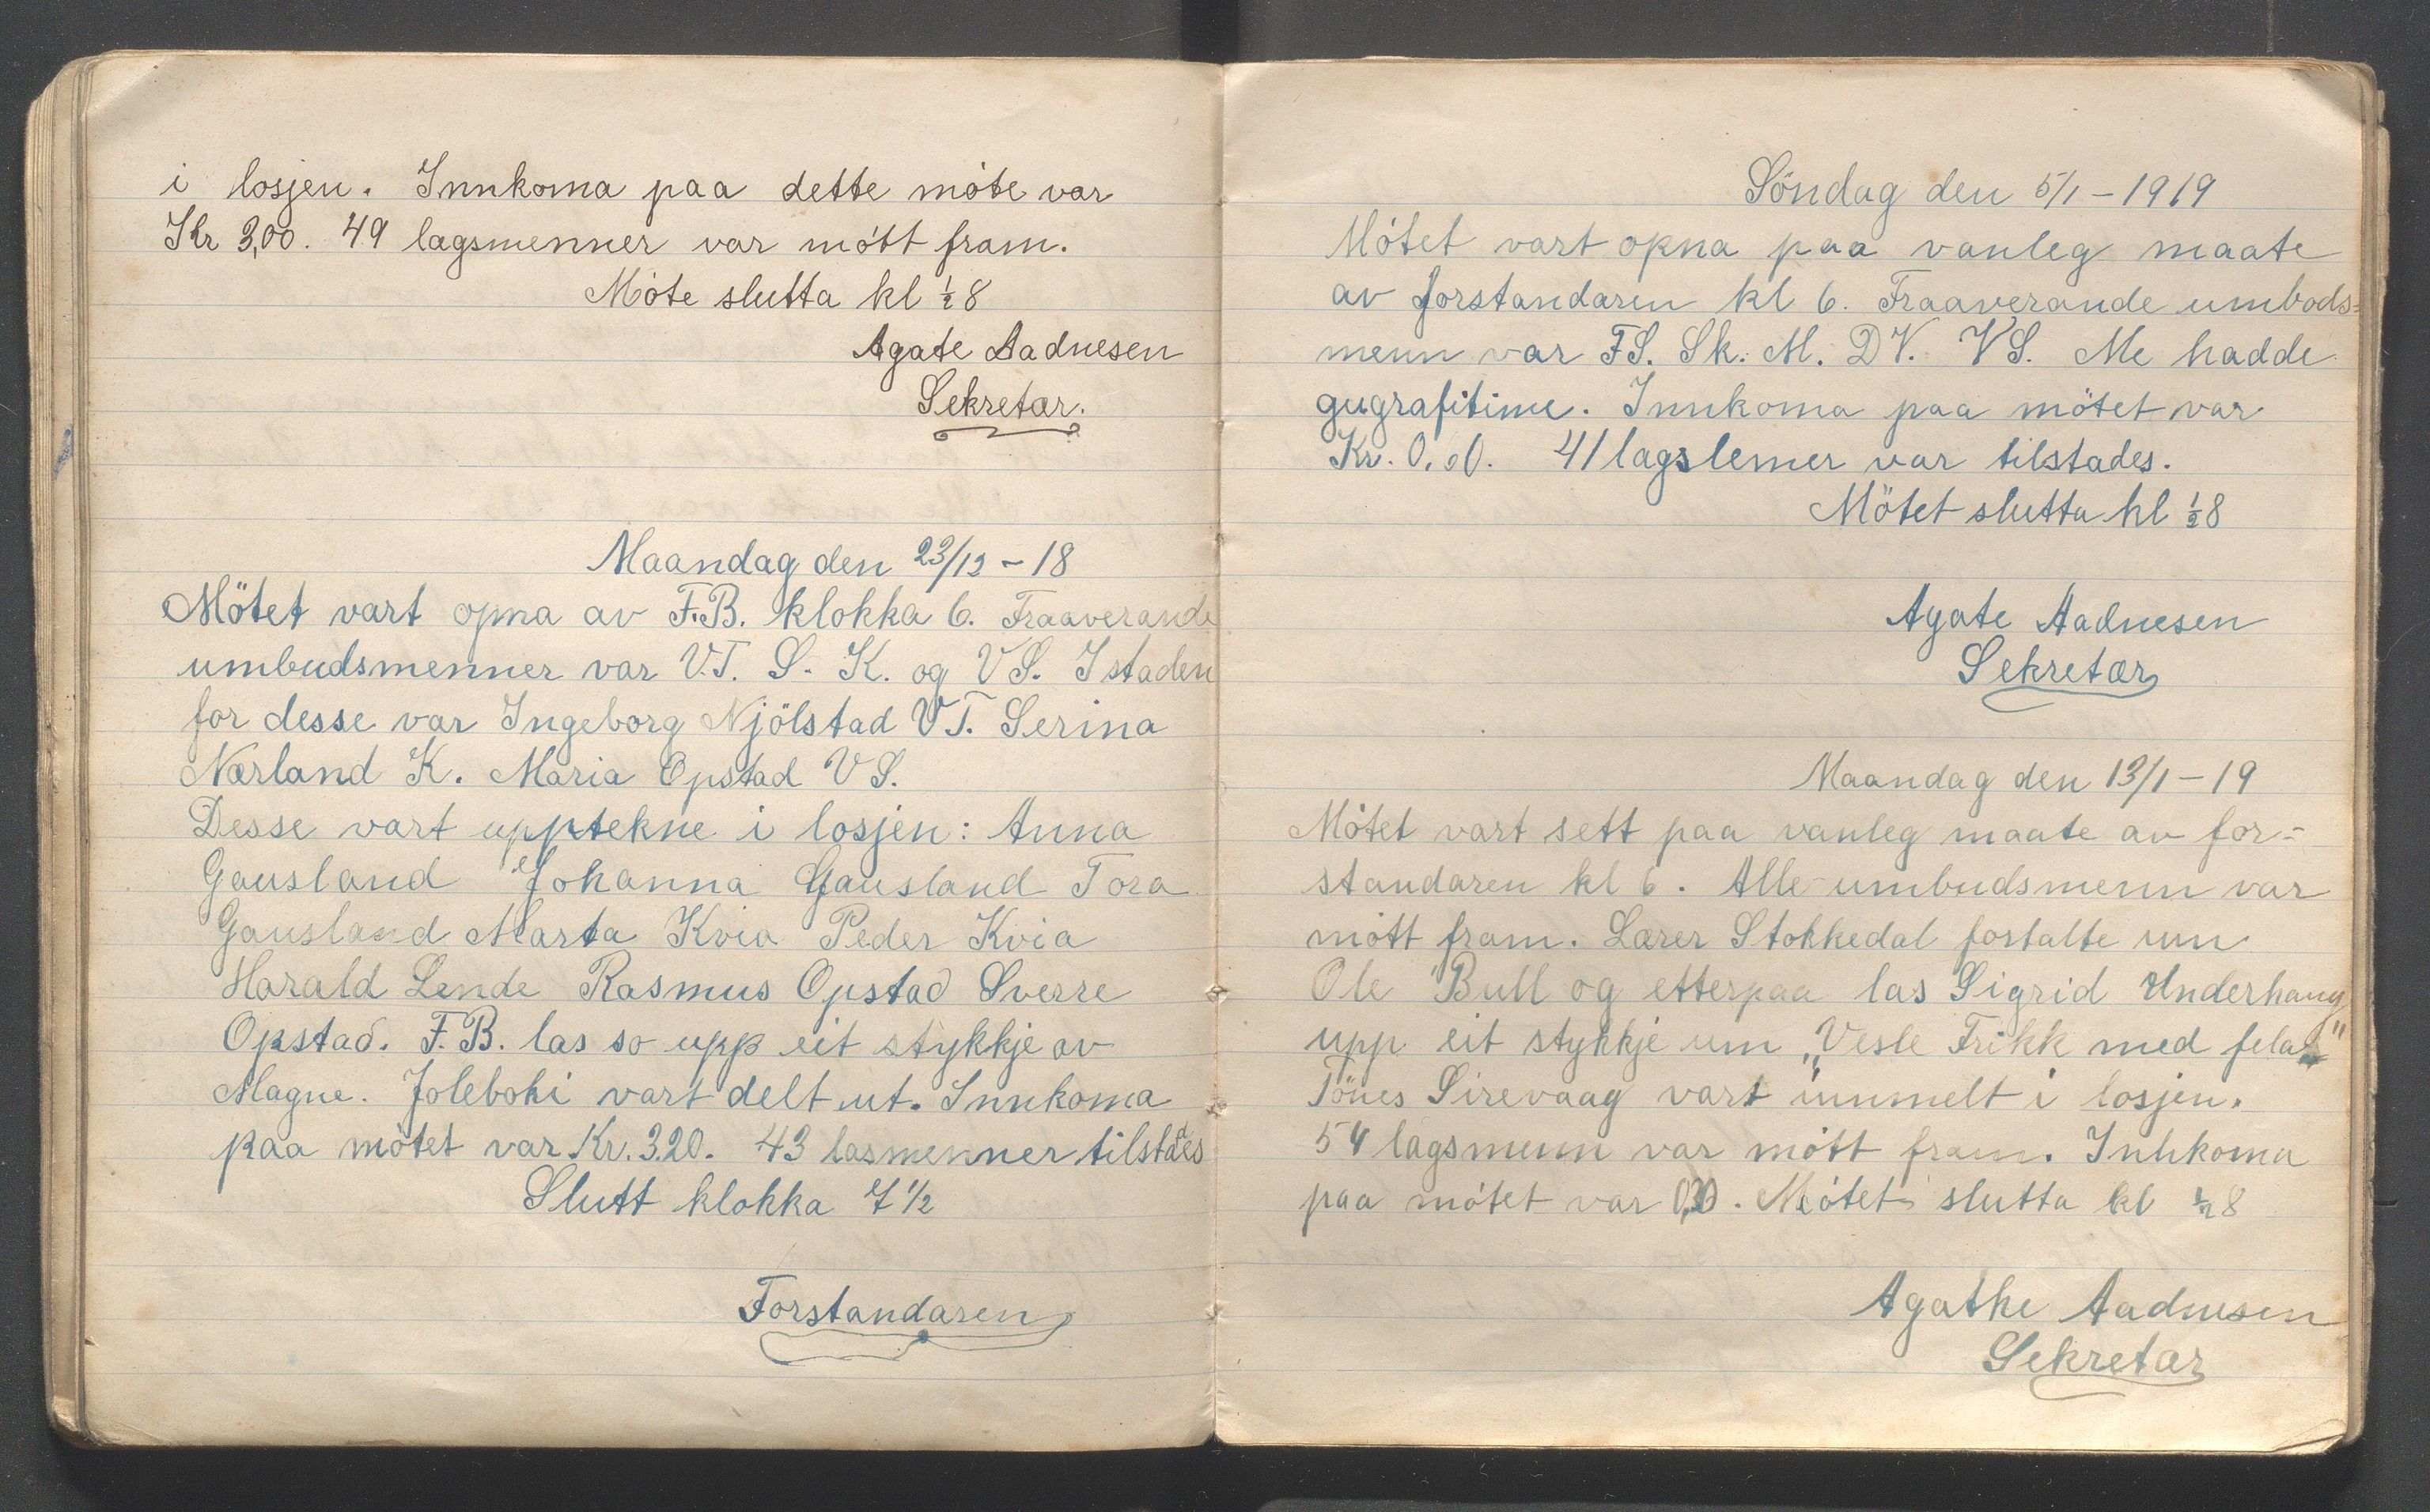 i losjen. Innkoma paa dette möte var
Kr 3,00. 49 lagsmenner var mött fram.
Möte slutta kl ½ 8
Agate Aadnesen
Sekretær.
Maandag den 23/12 - 18
Mötet vart opna av F.B. klokka 6. Fraaverande
umbudsmenner var V.T. S. K. og V S. I staden
for desse var Ingeborg Njölstad V T. Serina
Nærland K. Maria Opstad V S.
Desse vart upptekne i losjen: Anna
Gausland Johanna Gausland Tora
Gausland Marta Kvia Peder Kvia
Harald Lende Rasmus Opstad Sverre
Opstad. F. B. las so upp eit stykkje av
Magne. Joleboki vart delt ut. Innkoma
paa mötet var Kr. 3.20. 43 lasmenner tilstades
Slutt klokka 7 ½
Forstandaren
Söndag den 5/1 - 1919
Mötet vart opna paa vanleg maate
av forstandaren kl 6. Fraaverande umbods=
menn var FS. Sk. M. D V. V S. Me hadde
gugrafitime. Innkoma paa mötet var
Kr. 0,00. 41 lagslemer var tilstades.
Mötet slutta kl ½ 8
Agate Aadnesen
Sekretær
Maandag den 13/1 - 19
Mötet vart sett paa vanleg maate av for=
standaren kl 6. Alle umbudsmenn var
mött fram. Lærer Stokkedal fortalte um
Ole Bull og etterpaa las Sigrid Underhaug
upp eit stykkje um „Vesle Frikk med fela"
Tönes Sirevaag vart innmelt i losjen.
54 lagsmenn var mött fram. Innkoma
paa mötet var 0,30. Mötet slutta kl ½ 8
Agathe Aadnesen
Sekretær